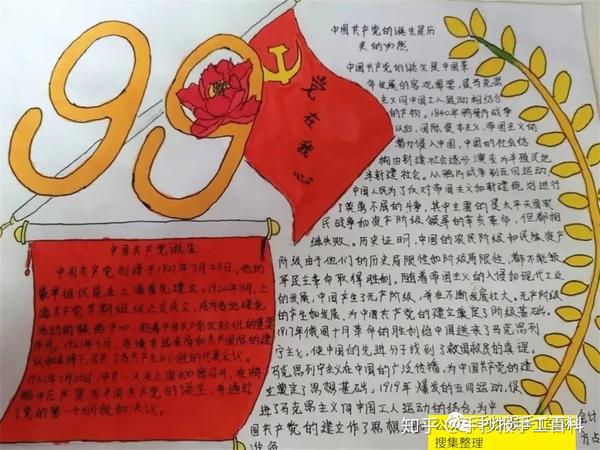 99
党在我心
中国共产党的诞生是历
史的必然
中国共产党的诞生是中国革
命发展的客观需要，是马克思
主义同中国工人运动相结合
的产物，1840年鸦片战争
以后，国际资本主义、帝国主义的
势力侵入中国，中国的社会结
构由封建社会逐步演变为半殖民地
半封建社会。从鸦片战争到五四运动，
中国人民为了反对帝国主义和封建统治进行
了英勇不屈的斗争，其中主要的是太平天国农
民战争和资产阶级领导的辛亥革命，但都相
继失败。历史证明，中国的农民阶级和民族资产
阶级由于他们的历史局限性和阶级局限性，都不能领
导民主革命取得胜利，随着帝国主义的入侵和现代工业
的发展，中国产生了无产阶级，并在不断发展壮大。无产阶级
的产生和发展，为中国共产党的建立奠定了阶级基础。
1917年俄国十月革命的胜利给中国送来了马克思列
宁主义，使中国的先进分子找到了救国救民的真理。
马克思列宁主义在中国的广泛传播，为中国共产党的建
立奠定了思想基础，1919年爆发的五四运动，促
进了马克思主义同中国工人运动的结合，为中
国共产党的建立作了思想
准备
中国共产党诞生
中国共产党创建于1921年7月23日，他的
最早组织是在上海首先建立。1920年8月，上
海共产党早期组织正式成立，成为各地建党
活动的联络中心，起着中国共产党发起组的重要
作用。1921年6月，在
1921年7月23日，中共一大在上海
庄严宣告中国共产党的诞生，并通过
了党的第一个纲领和决议。
知乎 @手抄报手工百科
搜集整理